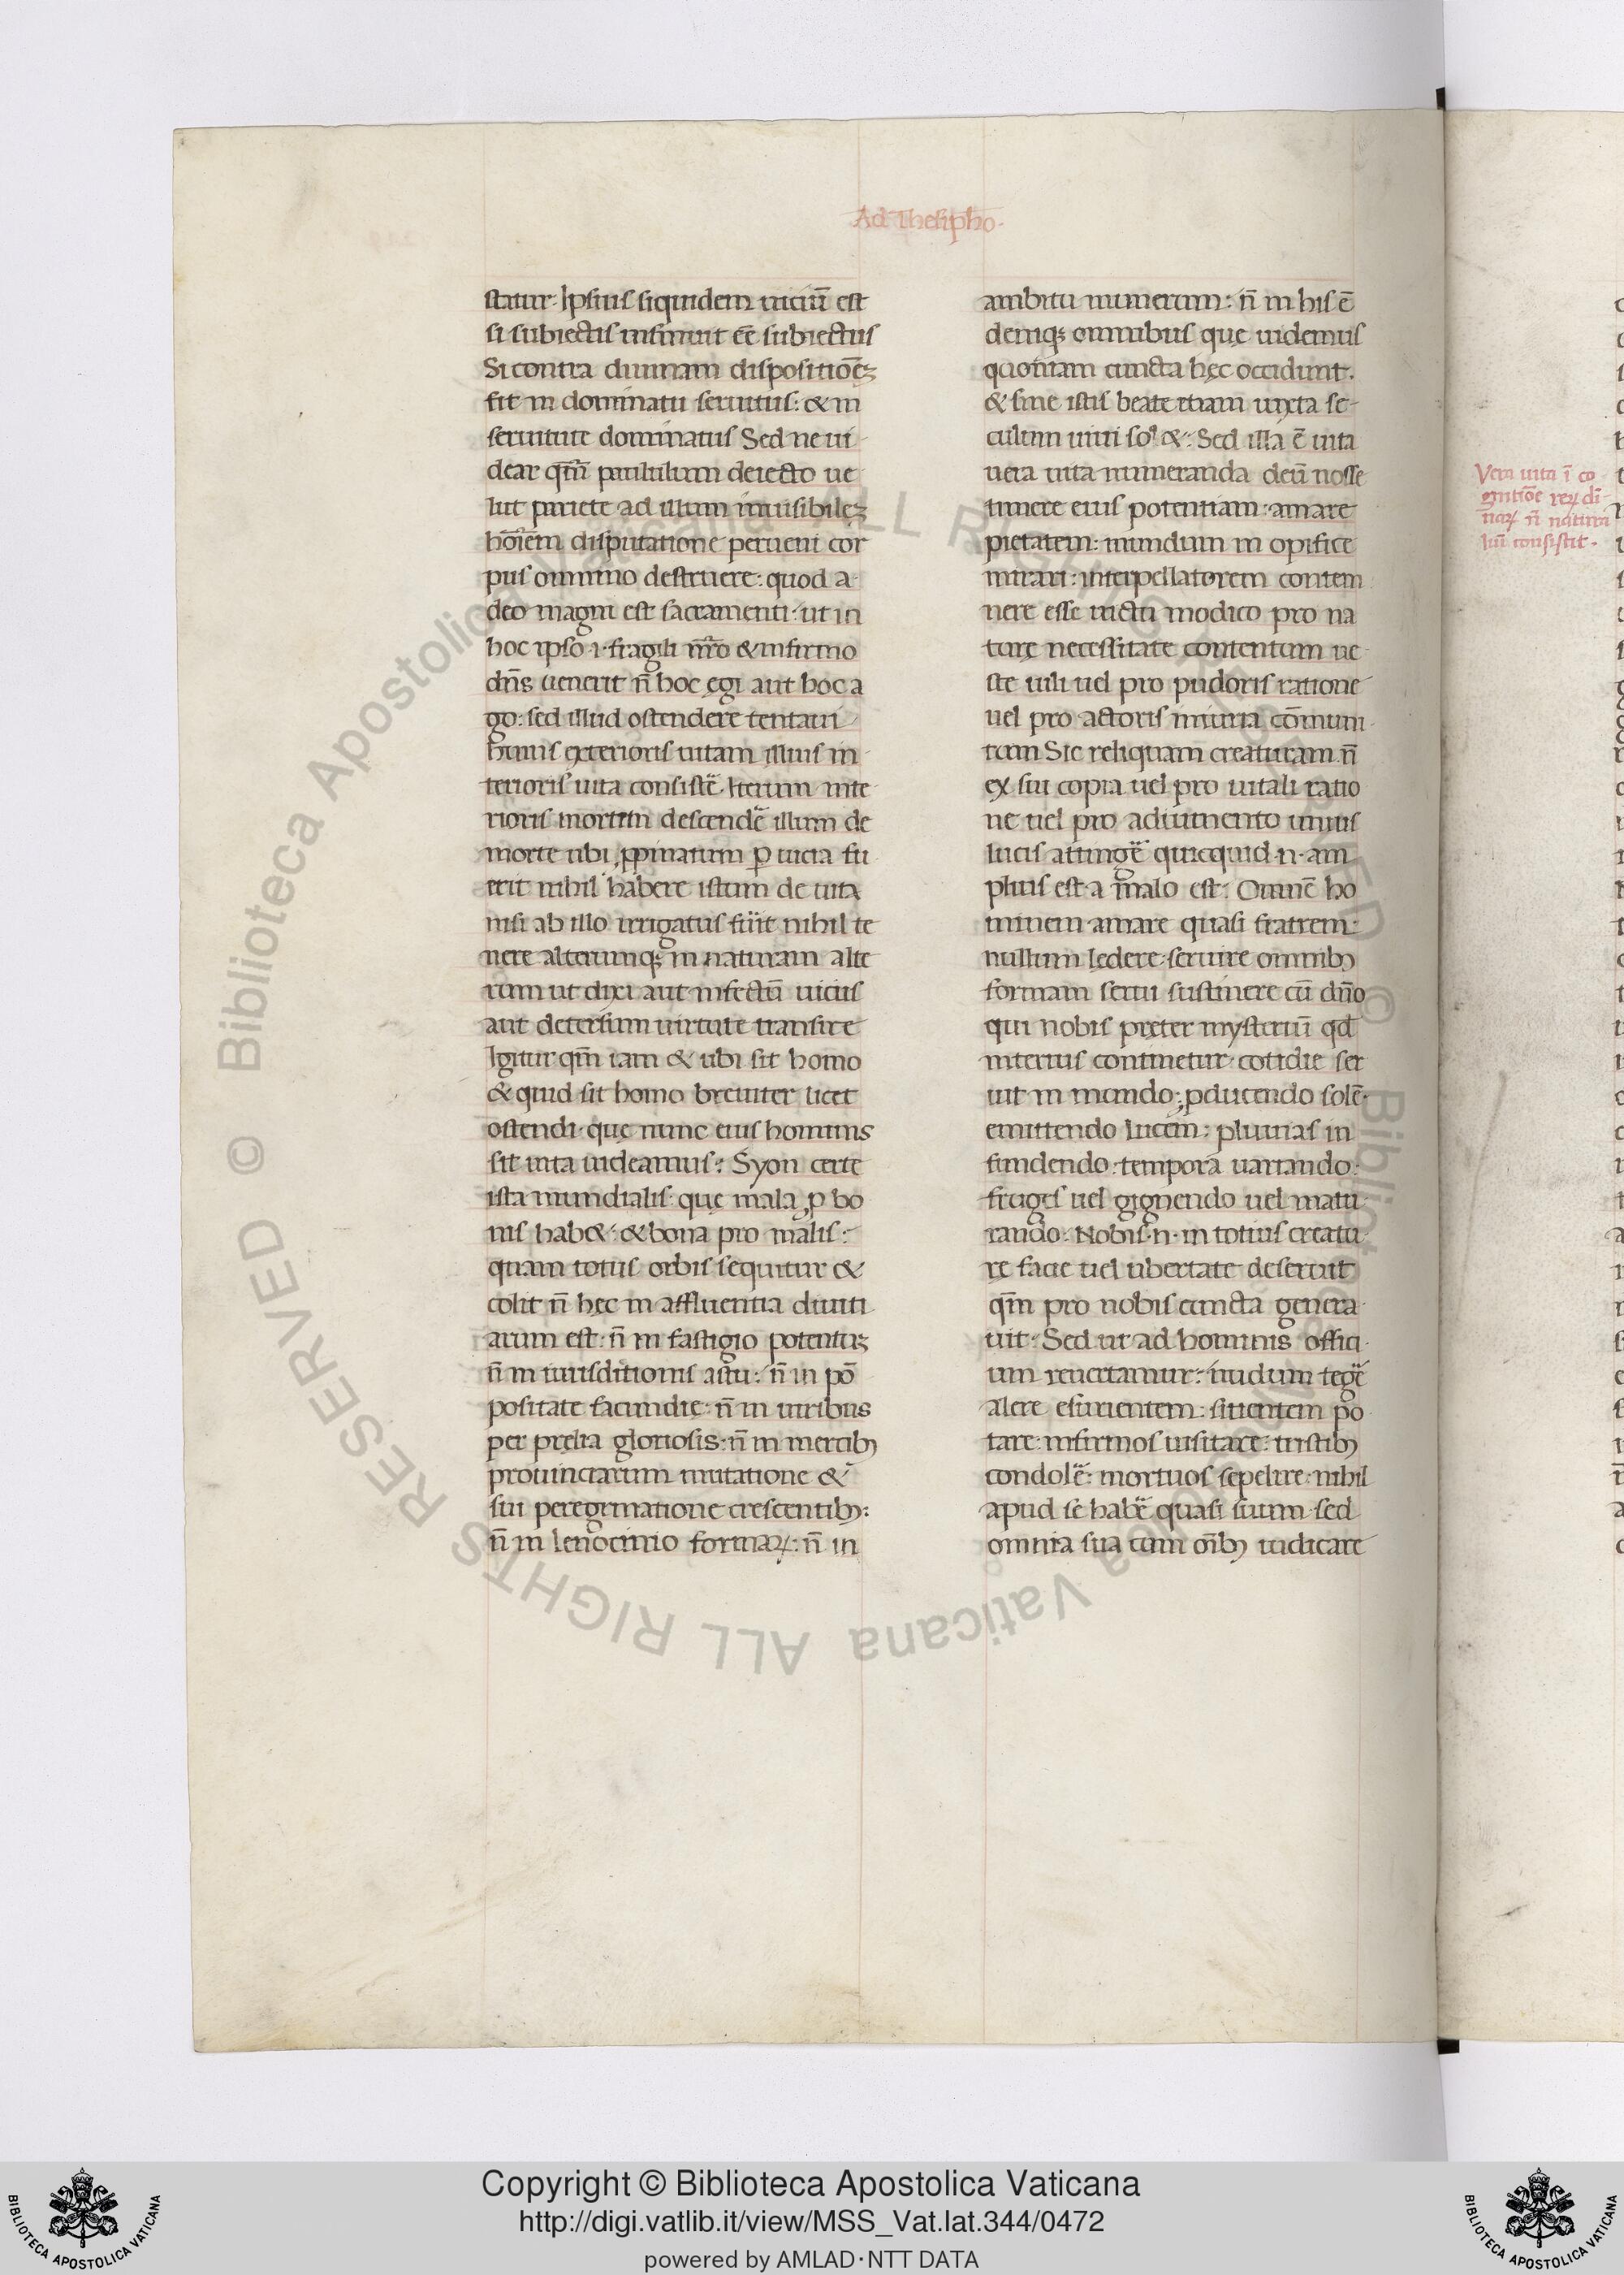 Ad Thesipho.
statur. Ipsius siquidem uiciū est
si subiectis insinuit eē subiectus
Si contra diuinam dispositiōeꝫ
fit in dominatu seruitus: & in
seruitute dominatus Sed ne ui-
dear qm̄ paululum deiecto ue
lut pariete ad illum inuisibileꝫ
hoīem disputatione perueni cor
pus omnino destruere: quod a-
deo magni est sacramenti. ut in
hoc ipso .i. fragili nr̄o & infirmo
dn̄s uenerit n̄ hoc ęgi aut hoc a
go: sed illud ostendere tentaui
huius exterioris uitam illius in-
terioris uita consistē. Iterum inte
rioris mortem descendē illum de
morte ubi ꝓpinatum ꝑ uicia fu
erit nihil habere istum de uita
nisi ab illo irrigatus fūit nihil te
nere alterumqꝫ in naturam alte
rum ut dixi aut infectū uiciis
aut detersum uirtute transire
Igitur qm̄ iam & ubi sit homo
& quid sit homo breuiter licet
ostendi. quę nunc eius hominis
sit uita uideamus: Syon certe
ista mundialis: quę mala ꝓ bo
nis hab&: & bona pro malis:
quam totus orbis sequitur &
colit n̄ hęc in affluentia diuiti
arum est: n̄ in fastigio potentiꝫ
n̄ in iurisditionis astu: n̄ in pō
positate facundię: n̄ in uiribus
per prelia gloriosis: n̄ in mercibꝫ
prouinciarum mutatione &
sui peregrinatione crescentibꝫ:
n̄ in lenocinio formaꝝ: n̄ in
ambitu numerum: n̄ in his ē
demqꝫ omnibus quę uidemus
quoniam cuncta hęc occidunt.
& sine istis beate etiam iuxta se-
culum uiui sol&: Sed illa ē uita
uera uita numeranda deū nosse
timere eius potentiam. amare
pietatem: mundum in opifice
mirari: interpellatorem contem
nere esse uictu modico pro na
turę necessitate contentum ue-
ste uili uel pro pudoris ratione
uel pro actoris iniuria cōmuni-
tum Sic reliquam creaturam n̄
ex sui copia uel pro uitali ratio
ne uel pro adiumento unius
lucis attingē quicquid .n. am
plius est a malo est: Omnē ho
minem amare quasi fratrem:
nullum ledere. seruire omnibꝫ
formam serui sustinere cū dn̄o
qui nobis pręter mysteriū qd̄
interius continetur. cotidie ser
uit in mundo: ꝓducendo solē.
emittendo lucem: pluuias in
fundendo: tempora uariando:
fruges uel gignendo uel matu-
rando: Nobis .n. in totius creatu-
rę facie uel ubertate deseruit
qm̄ pro nobis cuncta genera-
uit: Sed ut ad hominis offici-
um reuertamur: nudum tegē
alere esurientem: sitientem po
tare: infirmos uisitare: tristibꝫ
condolē: mortuos sepelire: nihil
apud se habē quasi suum. sed
omnia sua cum oībꝫ iudicare
Vera uita ī co
gnitiōe reꝝ di-
naꝝ n̄ natura
liū consistit.
Copyright © Biblioteca Apostolica Vaticana
http://digi.vatlib.it/view/MSS_Vat.lat.344/0472
powered by AMLAD·NTT DATA
BIBLIOTECA APOSTOLICA VATICANA
BIBLIOTECA APOSTOLICA VATICANA
© Biblioteca Apostolica Vaticana ALL RIGHTS RESERVED
© Biblioteca Apostolica Vaticana ALL RIGHTS RESERVED